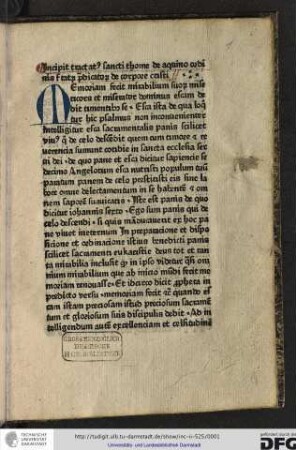 Incipit tractat9 sancti thome de aquino ordi
nis fratrũ p̃dicatoꝝ de corpore cristi
Memoriam fecit mirabilium suoꝝ mise
ricors et miserator dominus escam de
dit timentibꝰ se
Esca ista de qua loq̃
tur hic psalmus non inconuenienter
intelligitur esca sacramentalis panis scilicet
viuꝰ q̃ de celo descẽdit quem cum timore et re
uerencia sumunt cottidie in sancta ecclesia
dei de quo pane et esca dicitur sapiencie se
decimo Angelorum esca nutristi populum tuũ
paratum panem de celo prestitisti eis sine la
bore omne delectamentum in se habentẽ et om
nem saporẽ suauitatis Iste est panis de quo
dicitur iohannis sexto Ego sum panis qui de
celo descendi si quis manducauerit ex hoc pa
ne viuet ineternum In preparacione et dispo
sicione et istius benedicti panis
scilicet sacramenti eukaristie deus tot et tan
ta mirabilia inclusit in ipso videtur om
nium mirabilium que ab inicio mũdi fecit me
moriam renouasse Et ideo dicit ꝓpheta in
predicto versu memoriam fecit quando es
cam istam preciosam preciosum sacramẽ
tum et gloriosum suis discipulis dedit Ad in
telligendum autẽ excellenciam et celsitudinẽ
TECHNISCHE UNIVERSITÄT DARMSTADT
http://tudigit.ulb.tu-darmstadt.de/show/inc-ii-525/0001
Universitäts- und Landesbibliothek Darmstadt
gefördert durch die
DFG